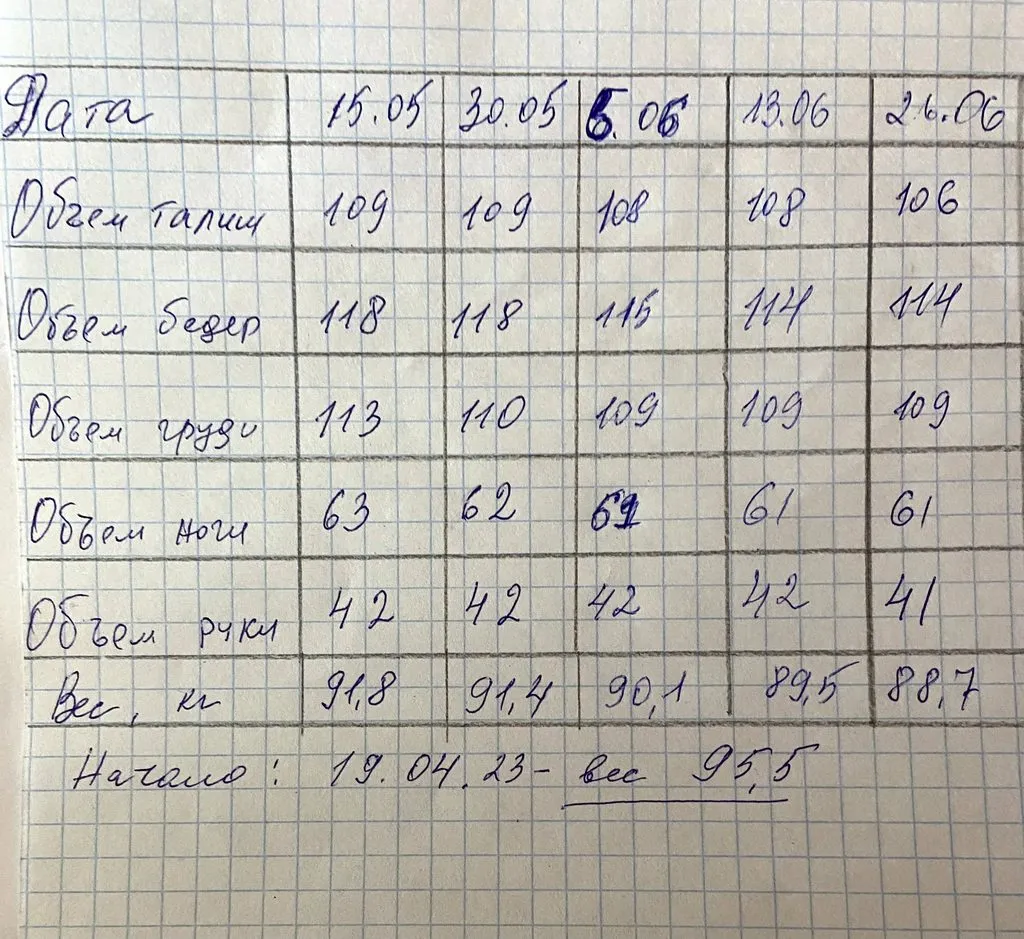 Дата 15.05 30.05 6.06 13.06 26.06
Объем талии 109 109 108 108 106
Объем бедер 118 118 115 114 114
Объем груди 113 110 109 109 109
Объем ноги 63 62 61 61 61
Объем руки 42 42 42 42 41
Вес, кг 91,8 91,4 90,1 89,5 88,7
Начало: 19.04.23- вес 95,5